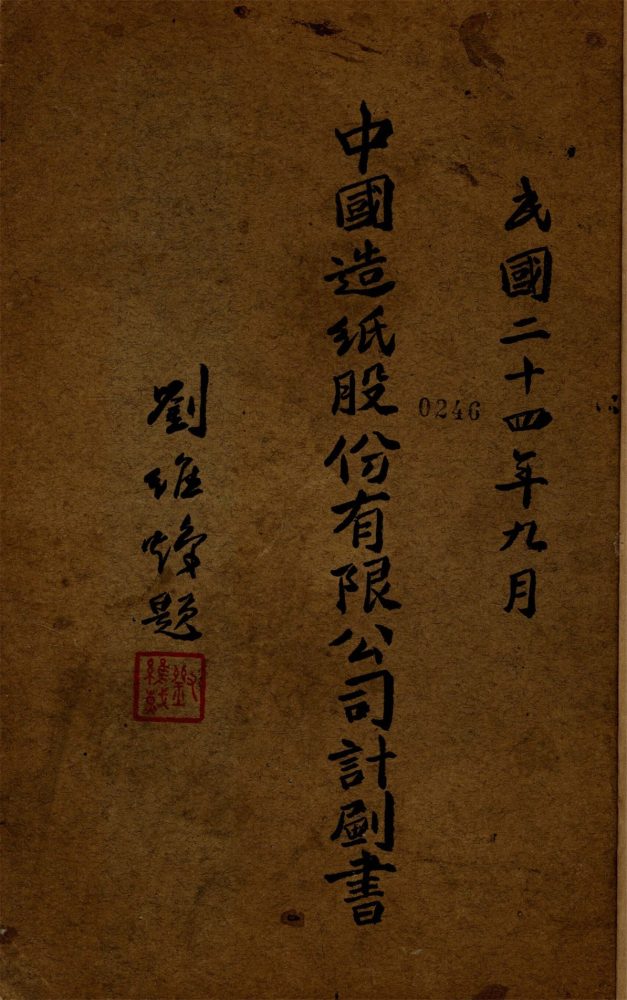 民國二十四年九月
中國造紙股份有限公司計劃書
0246
劉維煒題